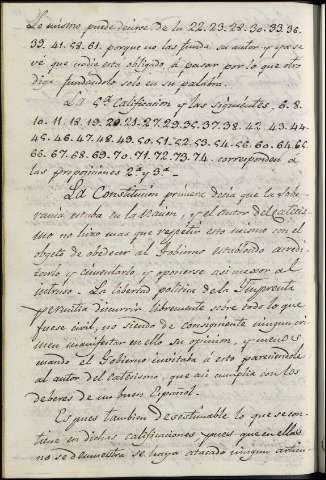 Lo mismo puede decirse de la 22. 23. 28. 30. 33. 36.
39. 41. 58. 61. porque no las funda su autor y ya se
vé que nadie está obligado á pasar por lo que otro
diga fundandolo solo en su palabra.
La 5ª Calificacion y las siguientes, 6. 8.
10. 11. 18. 19. 20. 21. 27. 29. 35. 37. 38. 42. 43. 44.
45. 46. 47. 48. 49. 50. 51. 52. 53. 54. 56. 60. 64. 65.
66. 67. 68. 69. 70. 71. 72. 73. 74. corresponden á
las proposiciones 2ª y 3ª
La Constitucion primera decia que la Sobe
rania estaba en la Nacion, y el autor del catecis
mo no hizo mas que repetir esto mismo con el
objeto de obedecer al Gobierno establecido acredi
tarlo y cimentarlo, y oponerse asi mejor al
intruso. La libertad politica de la Imprenta
permitia discurrir libremente sobre todo lo que
fuese civil, no siendo de consiguiente ningun cri
men manifestar en ello su opinion, y menos
cuando el Gobierno invitaba á esto pareciendole
al autor del catecismo, que asi cumplia con los
deberes de un buen Español.
Es pues tambien desestimable lo que se con
tiene en dichas calificaciones pues que en ellas
no se demuestra se haya atacado ningun articu